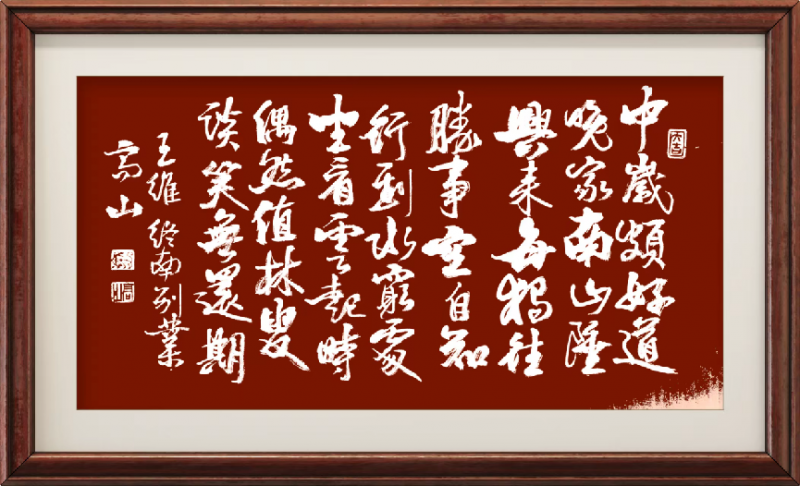 中歲頗好道
晚家南山陲
興來每獨往
勝事空自知
行到水窮處
坐看雲起時
偶然值林叟
談笑無還期
王維 終南别業
高山